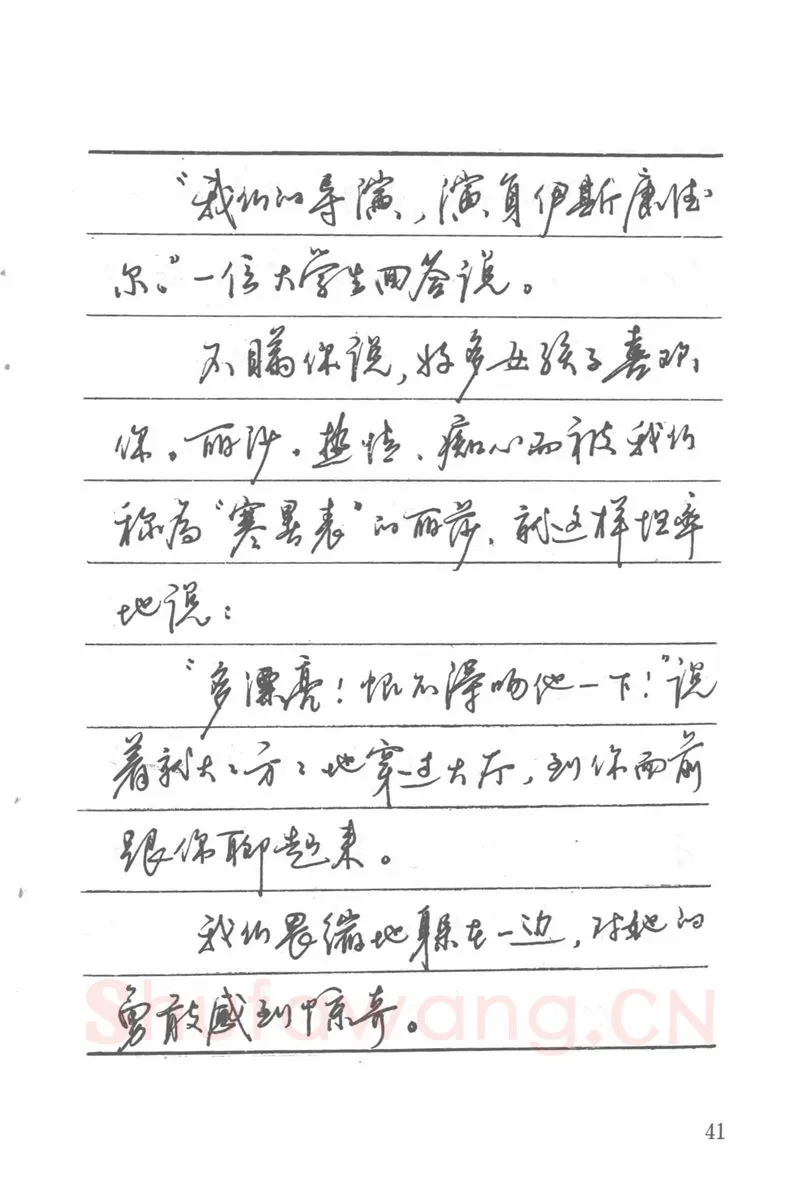 “我们的导演，演员伊斯康德
尔。”一位大学生回答说。
不瞒你说，好多女孩子喜欢
你。丽莎。热情、痴心而被我们
称为“寒暑表”的丽莎，就这样坦率
地说：
“多漂亮！恨不得吻他一下！”说
着就大々方々地穿过大厅，到你面前
跟你聊起来。
我们畏缩地躲在一边，对她的
勇敢感到惊奇。
Shufawang.CN
41